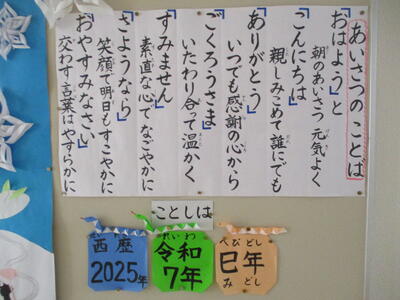 あいさつのことば
「おはよう」と
朝のあいさつ 元気よく
「こんにちは」
親しみこめて誰にでも
「ありがとう」
いつでも感謝の心から
「ごくろうさま」
いたわり合って温かく
「すみません」
素直な心で なごやかに
「さようなら」
笑顔で明日もすこやかに
「おやすみなさい」
交わす言葉はやすらかに
ことしは
西暦
2025年
れいわ
令和
7年
へびどし
巳年
みどし